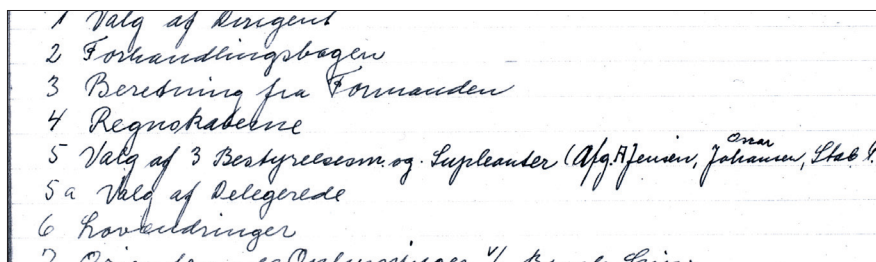 1 Valg af Dirigent
2 Forhandlingsbogen
3 Beretning fra Formanden
4 Regnskaberne
Oscar
5 Valg af 3 Bestyrelsesm. og Supleanter (Afg. A Jensen, Johansen, Stab
5a Valg af Delegerede
6 Lovændringer
7